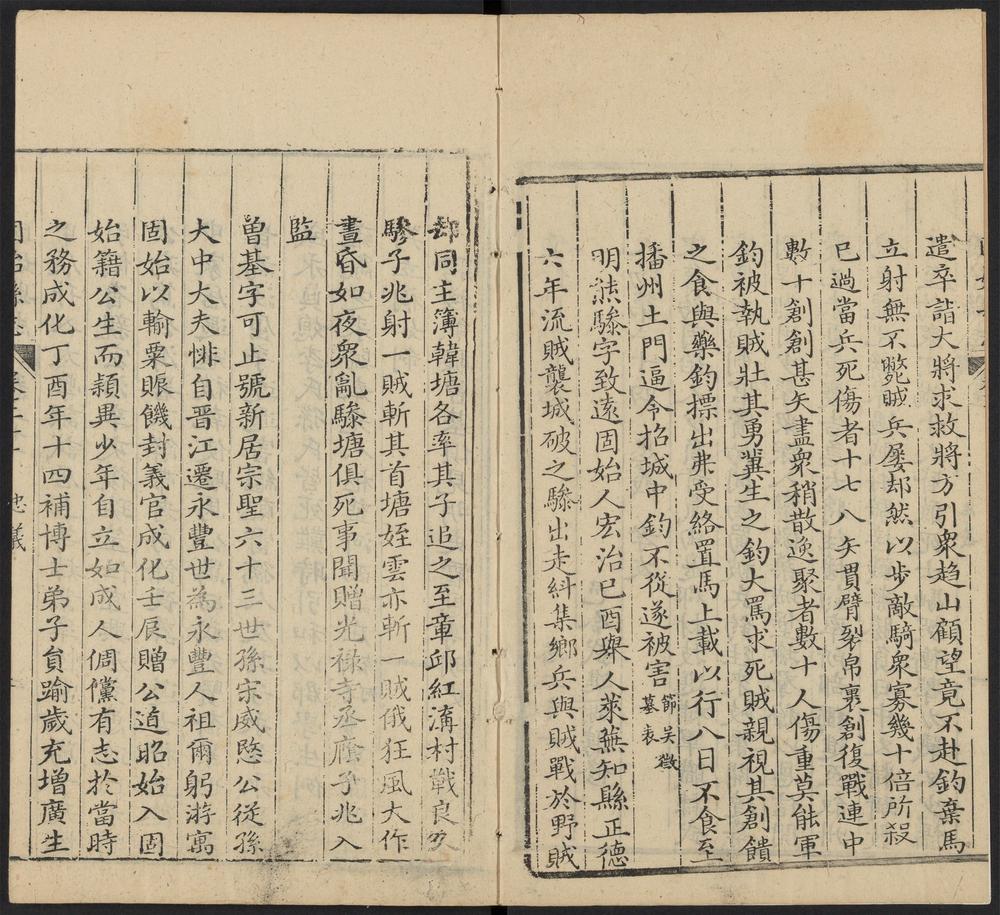 遣卒詣大將求救將方引衆趋山顧望竟不赴鈞棄馬
立射無不斃賊兵屡却然以歩敵騎衆寡幾十倍所殺
已過當兵死傷者十七八矢貫臂裂帛裹創復戰連中
數十創創甚矢盡衆稍散逸聚者數十人傷重莫能軍
鈞被執賊壯其勇冀生之鈞大罵求死賊親視其創饋
之食與藥鈞摽出弗受絡置馬上載以行八日不食至
播州土門逼令招城中鈞不從遂被害節吳徵墓表
明熊驂字致遠固始人宏治己酉舉人萊蕪知縣正德
六年流賊襲城破之驂出走糾集鄉兵與賊戰於野賊
却同主簿韓塘各率其子追之至章邱紅溝村戰良久
驂子兆射一賊斬其首塘姪雲亦斬一賊俄狂風大作
晝昏如夜衆亂驂塘俱死事聞贈光禄寺丞廕子兆入
監
曾基字可止號新居宗聖六十三世孫宋威愍公從孫
大中大夫悱自晋江遷永豐世為永豐人祖爾躬游寓
固始以輸粟賑饑封義官成化壬辰贈公道昭始入固
始籍公生而穎異少年自立如成人倜儻有志於當時
之務成化丁酉年十四補博士弟子貟踰歲充增廣生
固始縣志 卷二十 忠義